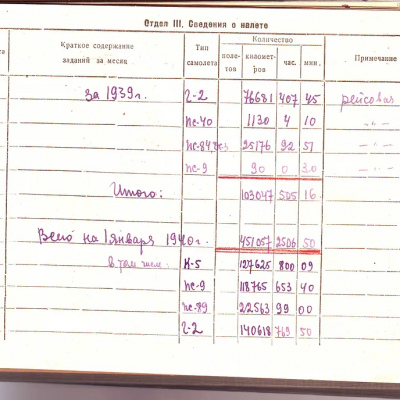 Отдел III. Сведения о налете
Краткое содержание заданий за месяц
Тип самолета
Количество
полетов
километров
час.
мин.
Примечание
за 1939г. Г-2 76681 407 45 рейсовая
пс-40 1130 4 10 -"-
пс-84 25176 92 51 -"-
пс-9 90 0 30 -"-
Итого: 103047 505 16
Всего на 1 января 1940г. 451057 2506 50
в том числ. К-5 127625 800 09
пс-9 118765 653 40
пс-89 22563 99 00
Г-2 140618 769 50